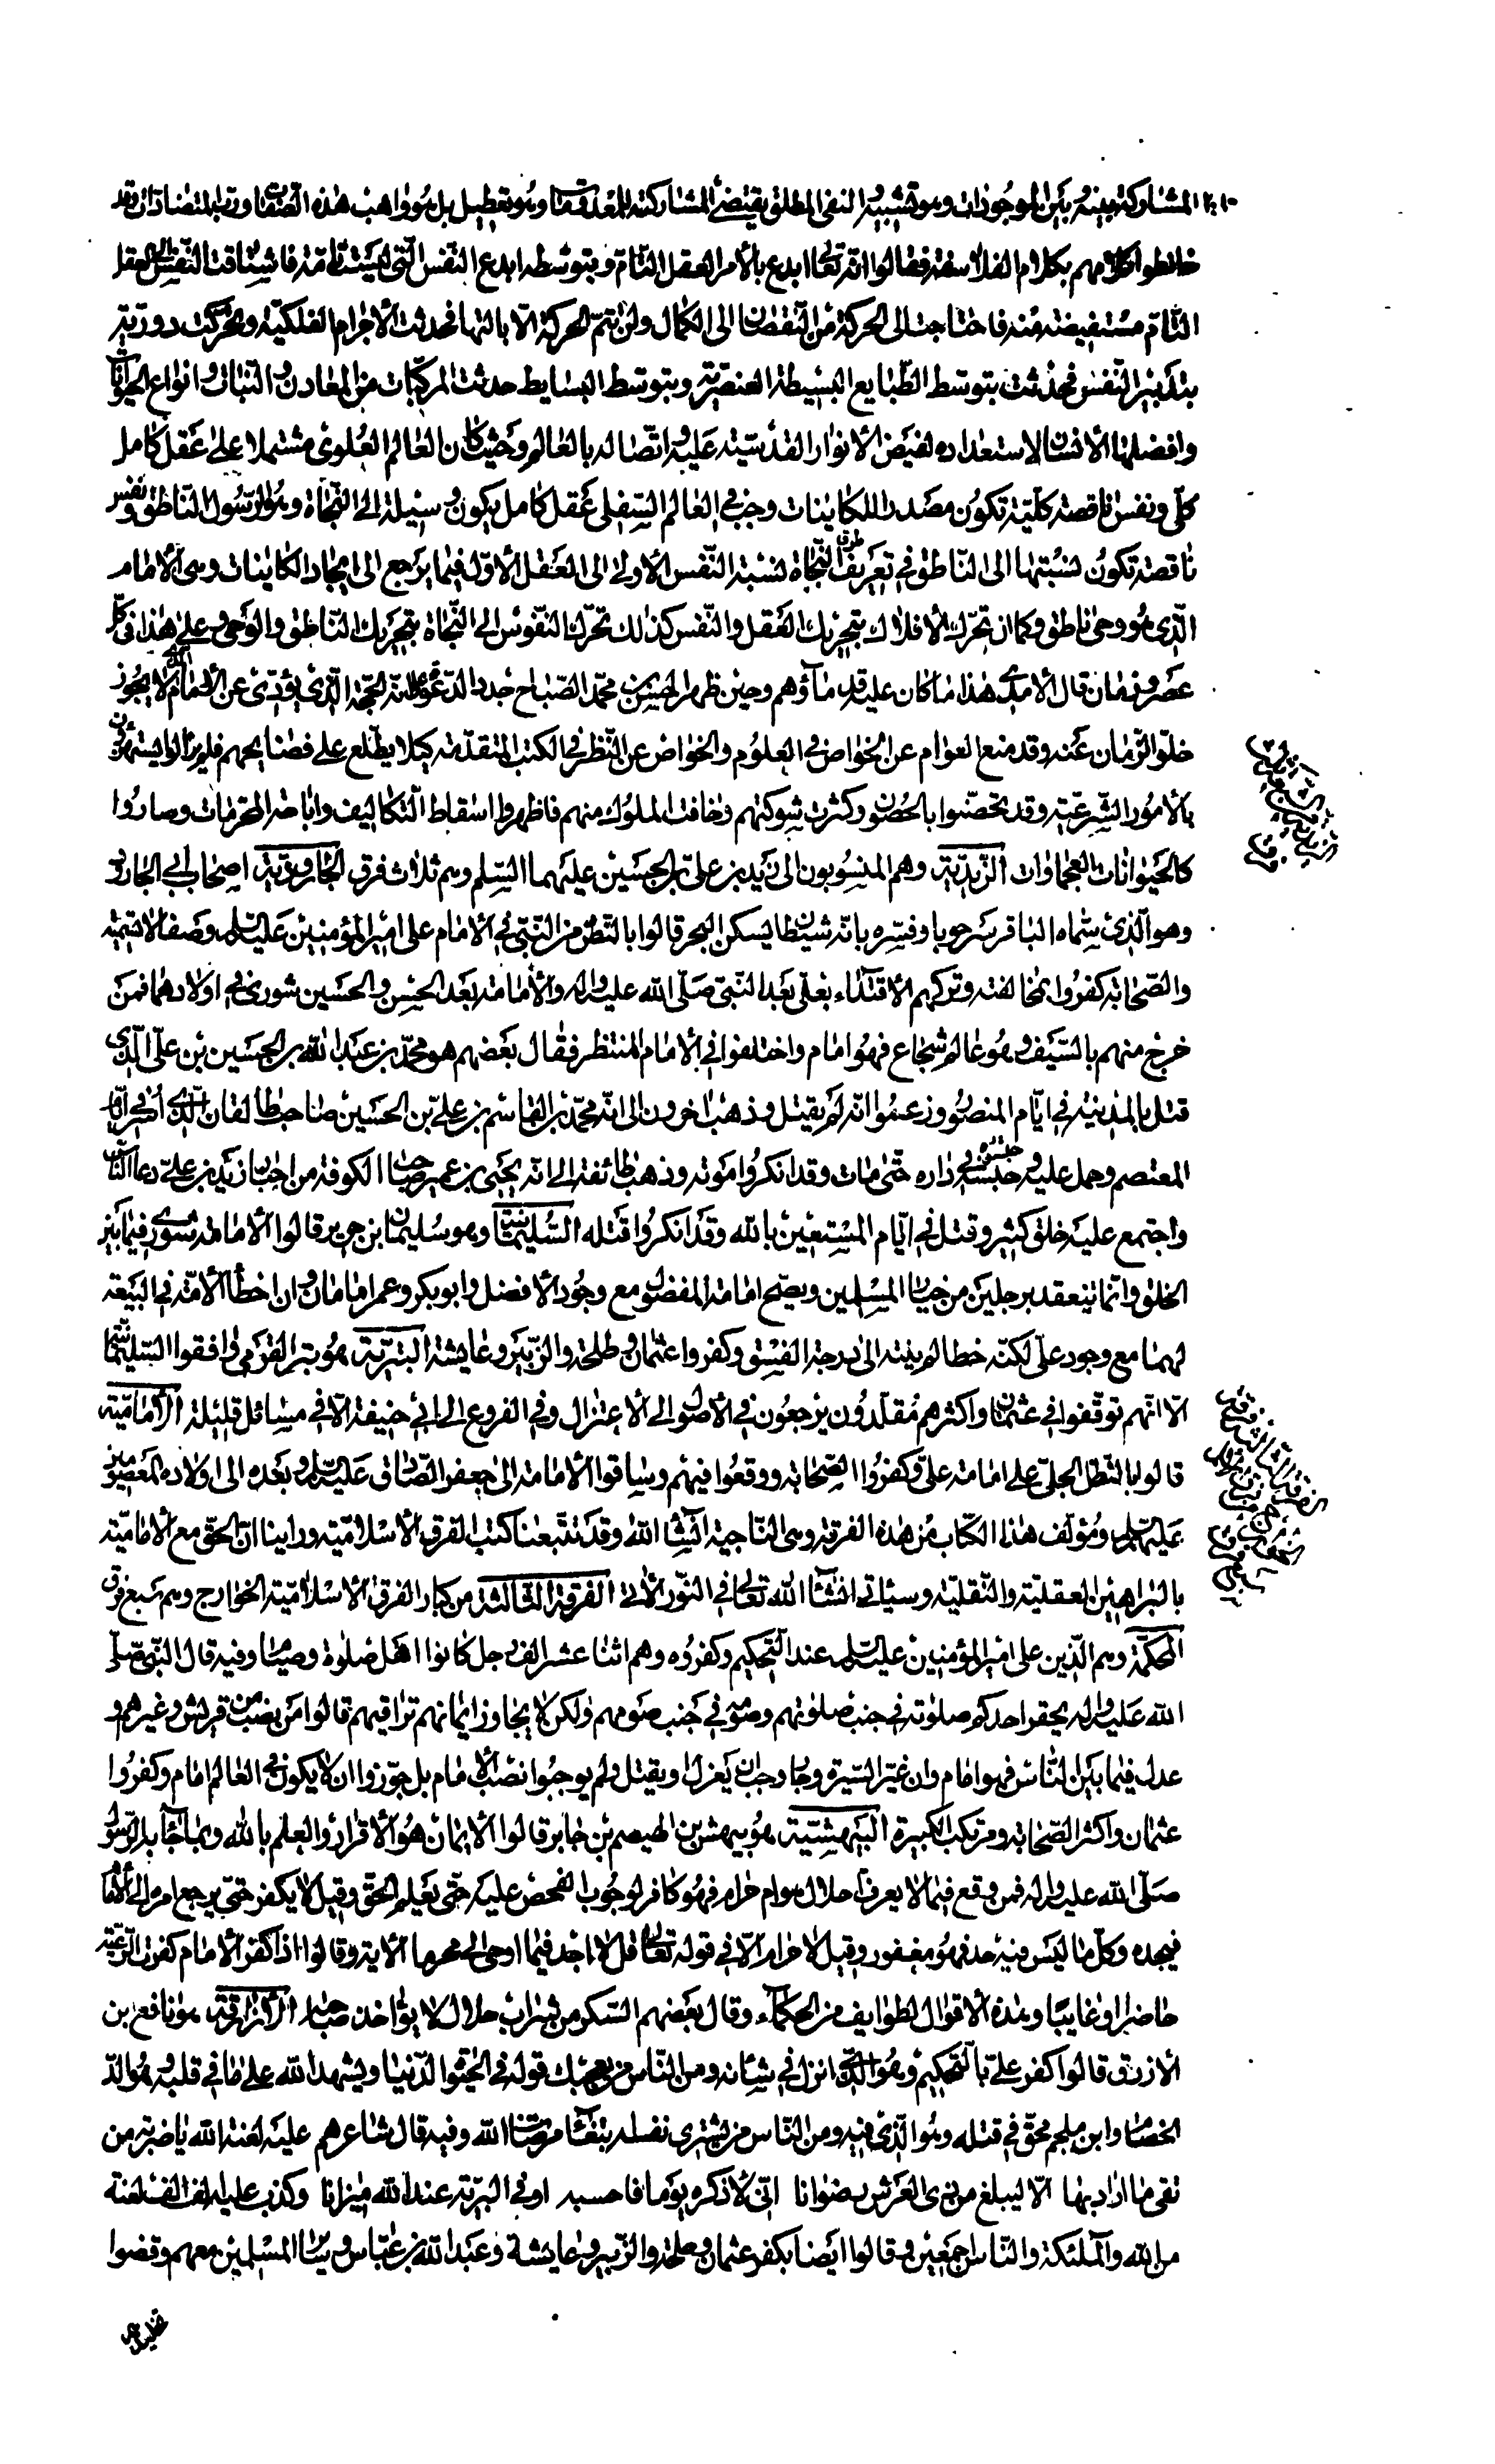 المشاركة بينه وبين الموجودات وهو تشبيه والنفي المطلق يقتضي المشاركة للمعدومات وهو تعطيل بل هو واهب هذه الصفات ورب المتضادات وقد
خلطوا كلامهم بكلام الفلاسفة فقالوا انه تعالى ابدع بالأمر العقل التام وبتوسطه ابدع النفس التي ليست تامة فاشتاقت النفس الى العقل
التام مستفيضة منه فاحتاجت الى الحركة من النقصان الى الكمال ولن تتم الحركة الا بالتها فحدثت الأجرام الفلكية وتحركت دورية
بتدبير النفس فحدثت بتوسط الطبايع البسيطة العنصرية وبتوسط البسايط حدثت المركبات من المعادن والنبات وانواع الحيوانات
وافضلها الأنسان لاستعداده لفيض الأنوار القدسية عليه واتصاله بالعالم وحيث كان العالم العلوي مشتملا على عقل كامل
كلي ونفس ناقصة كلية تكون مصدرا للكاينات وجب في العالم السفلي عقل كامل يكون وسيلة الى النجاة وهو الرسول الناطق ونفس
ناقصة تكون نسبتها الى الناطق في تعريف طرق النجاة نسبة النفس الأولى الى العقل الأول فيما يرجع الى ايجاد الكاينات وهي الأمام
الذي هو وصى ناطق وكما ان تحرك الأفلاك بتحريك العقل والنفس كذلك تحرك النفوس الى النجاة بتحريك الناطق والوصي وعلى هذا في كل
عصر وزمان قال الأمدي هذا ما كان عليه قدماؤهم وحين ظهر الحسن بن محمد الصباح جدد الدعوة على انه الحجة الذي يؤدي عن الأمام الذي لا يجوز
خلو الزمان عنه وقد منع العوام عن الخواض في العلوم والخواص عن النظر في الكتب المتقدمة كيلا يطلع على فضايحهم فلم يزالوا يستهزؤن
بالأمور الشرعية وقد تحصنوا بالحصون وكثرت شوكتهم وخافت الملوك منهم فاظهروا اسقاط التكاليف واباحة المحرمات وصاروا
كالحيوانات العجماوات الزيدية وهم المنسوبون الى زيد بن علي بن الحسين عليهما السلم وهم ثلاث فرق الجارودية اصحاب ابي الجارود
وهو الذي سماه الباقر سرحوبا وفسره بانه شيطان يسكن البحر قالوا بالنص من النبي في الأمام على امير المؤمنين عليه السلم وصفا لا تسمية
والصحابة كفروا بمخالفته وتركهم الأقتداء بعلي بعد النبي صلى الله عليه واله والأمامة بعد الحسن والحسين شورى في اولادهما فمن
خرج منهم بالسيف وهو عالم شجاع فهو امام واختلفوا في الأمام المنتظر فقال بعضهم هو محمد بن عبد الله بن الحسين بن علي الذي
قتل بالمدينة في ايام المنصور وزعموا انه لم يقتل وذهب اخرون الى انه محمد بن القاسم بن علي بن الحسين صاحب طالقان الذي اسر في ايام
المعتصم وحمل عليه وحبسه في داره حتى مات وقد انكروا موته وذهب طائفة الى انه يحيى بن عمير صاحب الكوفة من احباب زيد بن علي دعا الناس
واجتمع عليه خلق كثير وقتل في ايام المستعين بالله وقد انكروا قتله السليمانية وهو سليمان بن جرير قالوا الأمامة شورى فيما بين
الخلق وانما ينعقد برجلين من خيار المسلمين ويصح امامة المفضول مع وجود الأفضل وابو بكر وعمر امامان وان اخطأ الأمة في البيعة
لهما مع وجود علي لكنه خطا لم ينته الى درجة الفسق وكفروا عثمان وطلحة والزبير وعايشة البترية هو بتر القومي وافقوا السليمانية
الا انهم توقفوا في عثمان واكثرهم مقلدون يرجعون في الأصول الى الأعتزال وفي الفروع الى ابي حنيفة الا في مسائل قليلة الأمامية
قالوا بالنص الجلي على امامة علي وكفروا الصحابة ووقعوا فيهم وساقوا الأمامة الى جعفر الصادق عليه السلم وبعده الى اولاده المعصومين
عليهم السلم ومؤلف هذا الكتاب من هذه الفرقة وهي الناجية انشاء الله وقد تتبعنا كتب الفرق الأسلامية وراينا ان الحق مع الأمامية
بالبراهين العقلية والنقلية وسياتي انشاء الله تعالى في النور الأتي الفرقة الثالثة من كبار الفرق الأسلامية الخوارج وهم سبع فرق
المحكمة وهم الذين على امير المؤمنين عليه السلم عند التحكيم وكفروه وهم اثنا عشر الف رجل كانوا اهل صلوة وصيام وفيه قال النبي صلى
الله عليه واله يحقر احدكم صلوته في جنب صلوتهم وصومه في جنب صومهم ولكن لا يجاوز ايمانهم تراقيهم قالوا من نصب من قريش وغيرهم و
عدل فيما بين الناس فهو امام وان غير السيرة وجار وجب ان يعزل او يقتل ولم يوجبوا نصب الأمام بل جوزوا ان لا يكون في العالم امام وكفروا
عثمان واكثر الصحابة ومرتكب الكبيرة البيهشية هو بيهش بن الهيصم بن جابر قالوا الأيمان هو الأقرار والعلم بالله وبما جاء به الرسول
صلى الله عليه واله فمن وقع فيما لا يعرف أحلال هو ام حرام فهو كافر لوجوب الفحص عليه حتى يعلم الحق وقيل لا يكفر حتى يرجع امره الى الأمام
فيحده وكل ما ليس فيه حد فهو مغفور وقيل لا حرام الا في قوله تعالى قل لا اجد فيما اوحى الي محرما الأية وقالوا اذا كفر الأمام كفرت الرعية
حاضرا وغايبا وهذه الأقوال لطوايف من الحكماء وقال بعضهم السكر من شراب حلال لا يؤاخذ صاحبه الأزارقة هو نافع بن
الأزرق قالوا كفر علي بالتحكيم وهو الذي انزل في شانه ومن الناس من يعجبك قوله في الحيوة الدنيا ويشهد الله على ما في قلبه وهو الد
الخصام وابن ملجم محق في قتله وهو الذي فيه ومن الناس من يشتري نفسه ابتغاء مرضات الله وفيه قال شاعرهم عليه لعنة الله يا ضربة من
تقي ما اراد بها الا ليبلغ من ذي العرش رضوانا اني لأذكره يوما فاحسبه اوفى البرية عند الله ميزانا وكذب عليه الف الف لعنة
من الله والملئكة والناس اجمعين وقالوا ايضا بكفر عثمان وطلحة والزبير وعايشة وعبد الله بن عباس وساير المسلمين معهم وقضوا